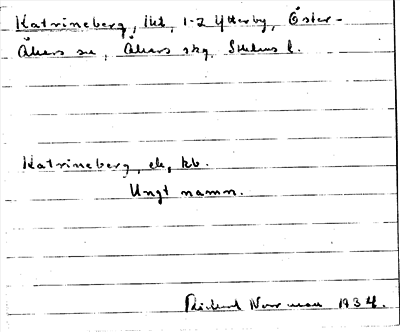 Katrineberg, lht, 1-2 Ytterby, Öster-
Åkers sn, Åkers skg, Sthlms l.
Katrineberg, ek, kb.
Ungt namn.
Rickard Norman 1934.